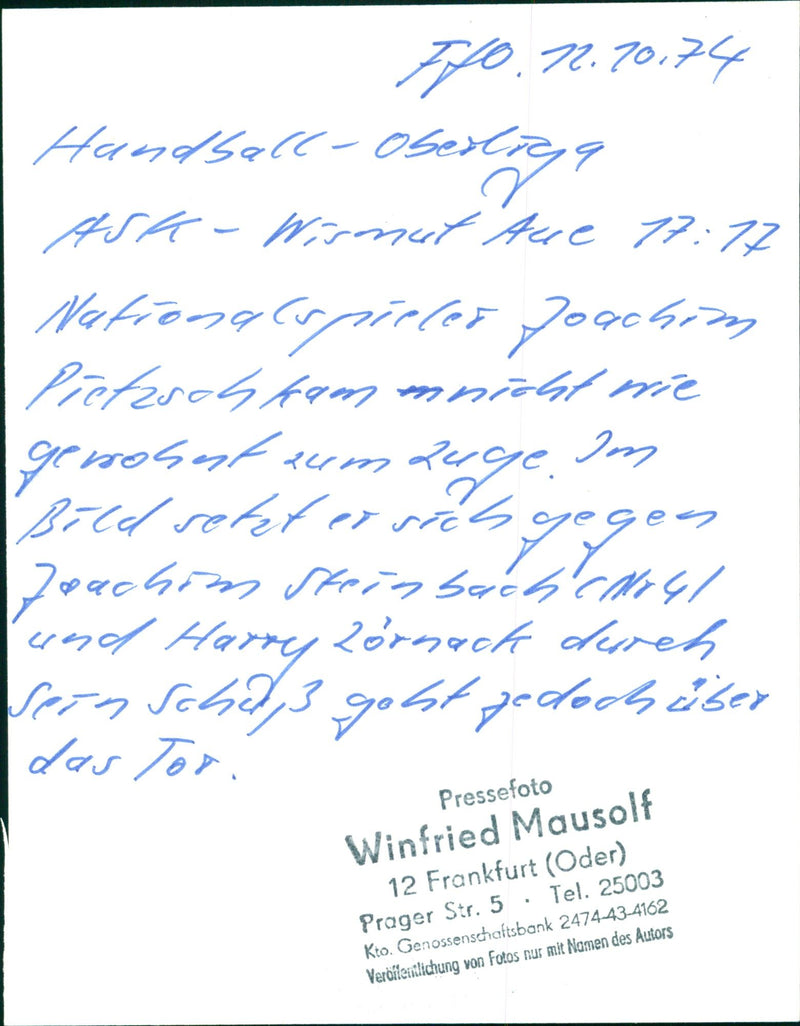 FfO. 12.10.74
Handball - Oberliga
ASK - Wismut Aue 17:17
Nationalspieler Joachim
Pietzsch kam nicht wie
gewohnt zum Zuge. Im
Bild setzt er sich gegen
Joachim Steinbach (Nr 4)
und Harry Zörnack durch
Sein Schuß geht jedoch über
das Tor.
Pressefoto
Winfried Mausolf
12 Frankfurt (Oder)
Prager Str. 5 · Tel. 25003
Kto. Genossenschaftsbank 2474-43-4162
Veröffentlichung von Fotos nur mit Namen des Autors